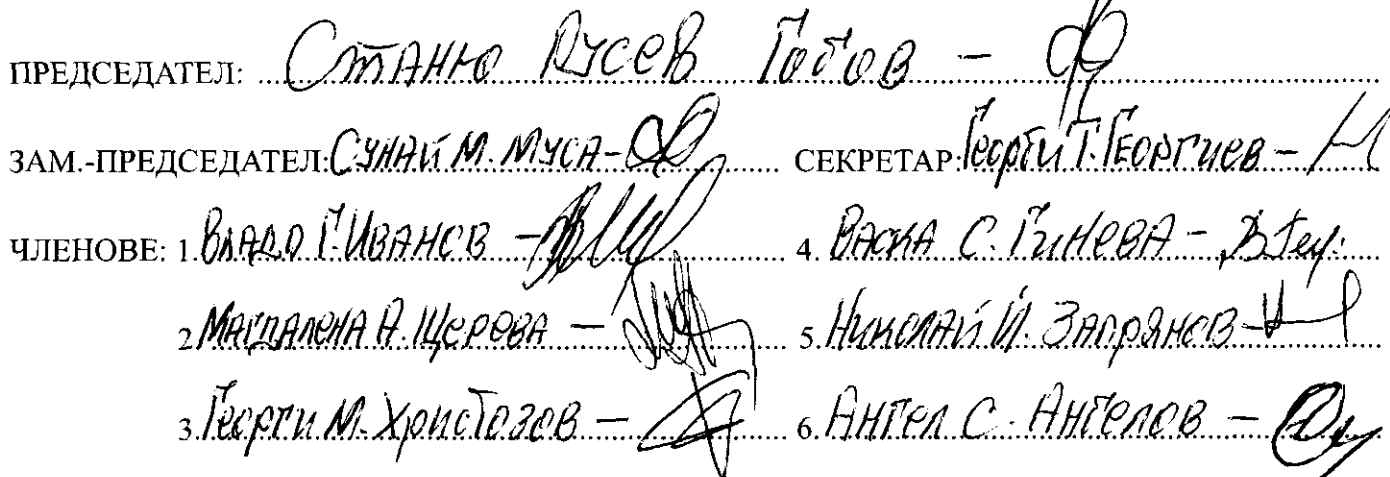 ПРЕДСЕДАТЕЛ: Станю Русев Гобов –
ЗАМ.-ПРЕДСЕДАТЕЛ: Сунай М. Муса – СЕКРЕТАР: Георги Т. Георгиев –
ЧЛЕНОВЕ: 1. Владо Г. Иванов – 4. Васка С. Гинева –
2. Магдалена А. Щерева – 5. Николай И. Запрянов –
3. Георги М. Христозов – 6. Ангел С. Ангелов –